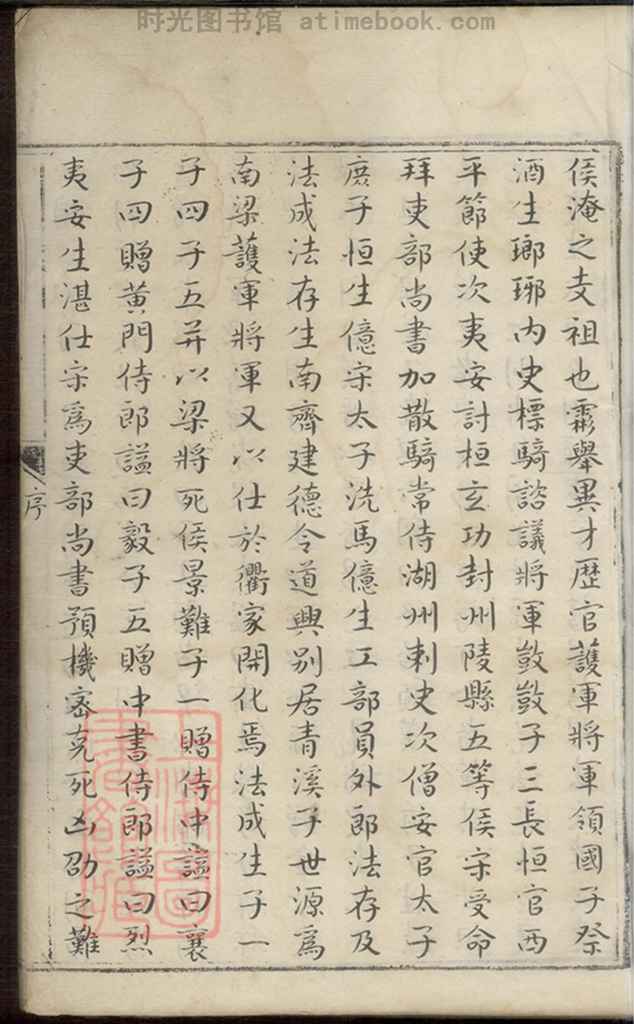 时光图书馆 atimebook.com
侯淹之支祖也霦舉異才歷官護軍將軍領國子祭
酒生瑯琊內史標騎諮議將軍敳敳子三長恒官西
平節使次夷安討桓玄功封州陵縣五等侯宋受命
拜吏部尚書加散騎常侍湖州刺史次僧安官太子
庶子恒生億宋太子洗馬億生工部員外郎法存及
法成法存生南齊建德令道興别居青溪子世源為
南梁護軍將軍又以仕於衢家開化焉法成生子一
子四子五并以梁將死侯景難子一贈侍中謚曰襄
子四贈黃門侍郎謚曰毅子五贈中書侍郎謚曰烈
夷安生湛仕宋爲吏部尚書預機密克死凶劭之難
序